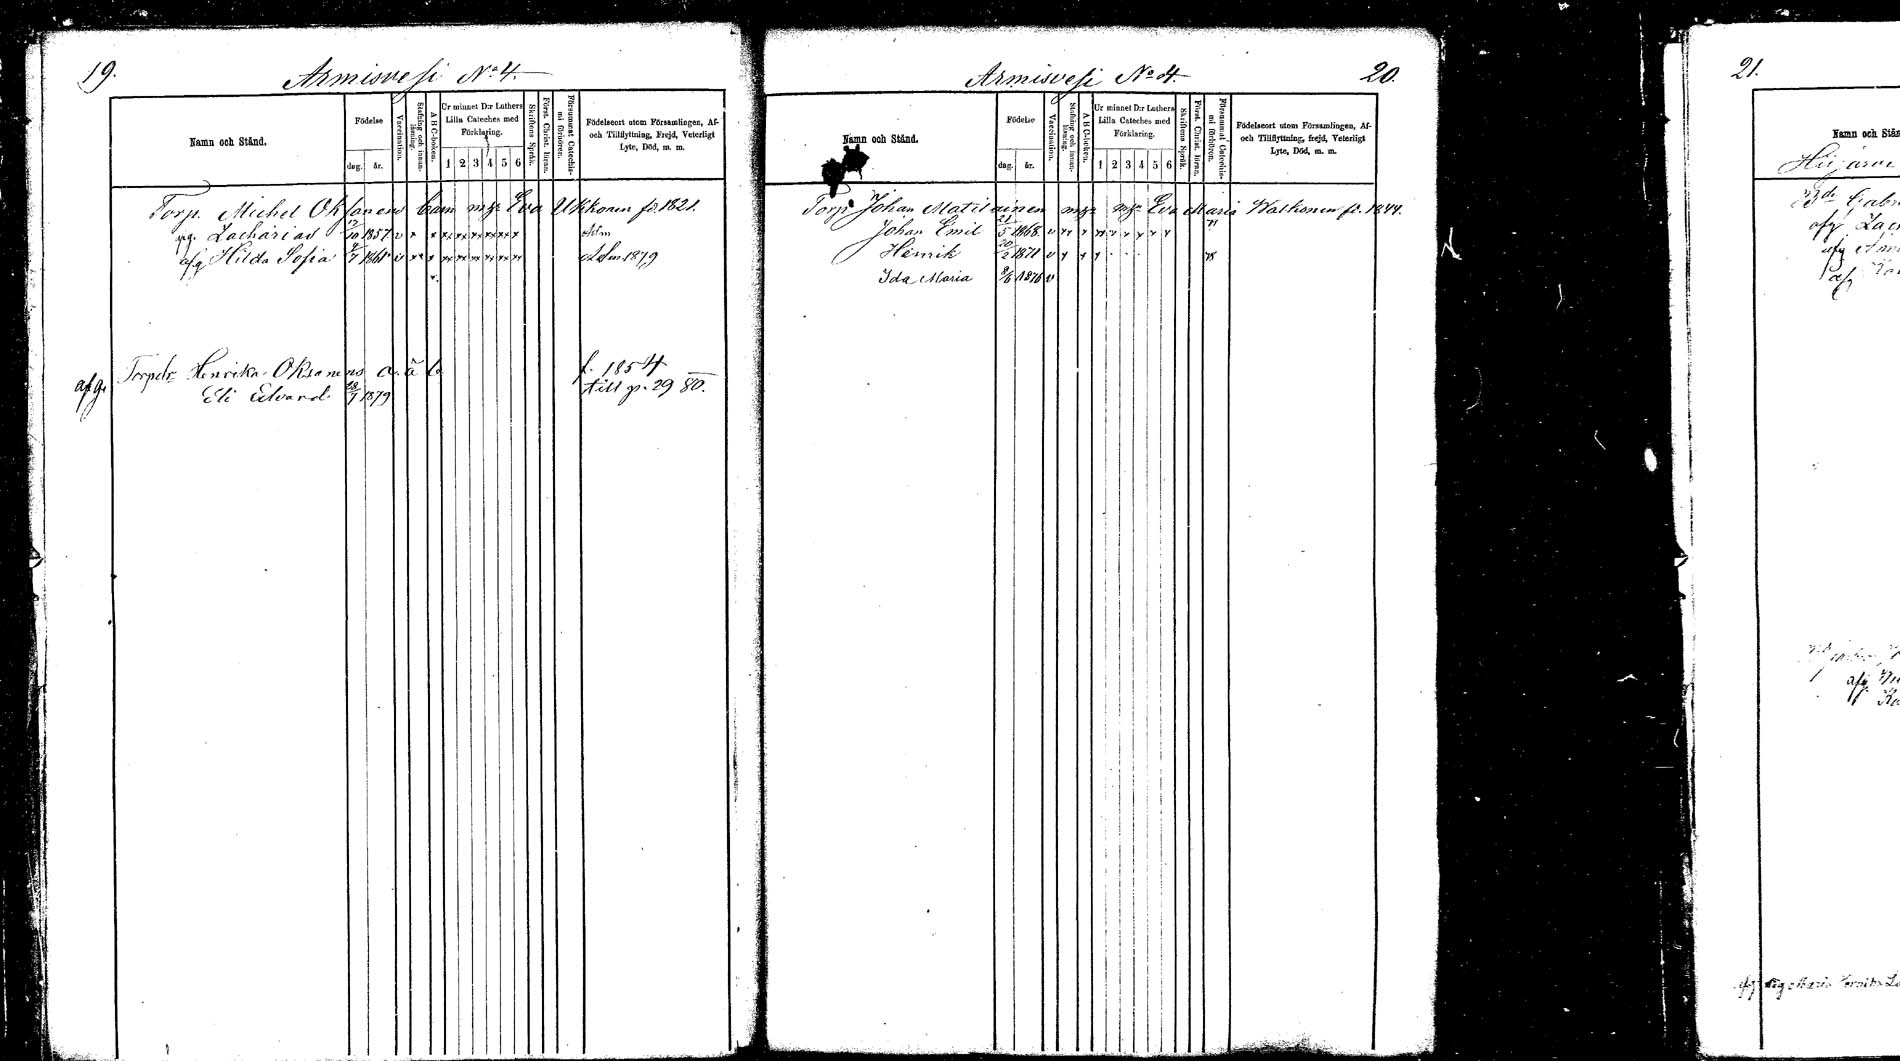 19.
Armisvesi No 4.
Namn och Stånd.
Födelse
dag.
år.
Vaccination.
Stafning och innan-
läsning.
A B C-boken.
Ur minnet D:r Luthers
Lilla Cateches med
Förklaring.
1 2 3 4 5 6
Skriftens Språk.
Först. Christ. läran.
Försummat Catechis-
mi förhören.
Födelseort utom Församlingen, Af-
och Tillflyttning, Frejd, Veterligt
Lyte, Död, m. m.
Torp. Michel Oksanens barn m. h. Eva Ukkonen fö. 1821.
Zacharias 12/10 1857 v
afg Hilda Sofia 4/7 1861 v Adm 1879
Torpdr. Henrika Oksanens o. ä. b. f. 1854
afg. Eli Edvard 28/7 1879 till p. 29 80.
Armisvesi No 4.
20.
Namn och Stånd.
Födelse
dag.
år.
Vaccination.
Stafning och innan-
läsning.
A B C-boken.
Ur minnet D:r Luthers
Lilla Cateches med
Förklaring.
1 2 3 4 5 6
Skriftens Språk.
Först. Christ. läran.
Försummat Catechis-
mi förhören.
Födelseort utom Församlingen, Af-
och Tillflyttning, frejd, Veterligt
Lyte, Död, m. m.
Torp. Johan Matilainen Eva Maria Walkonen fö. 1844.
Johan Emil 21/5 1868 v
Henrik 20/2 1871 v
Ida Maria 8/6 1876 v
21.
Namn och Stån